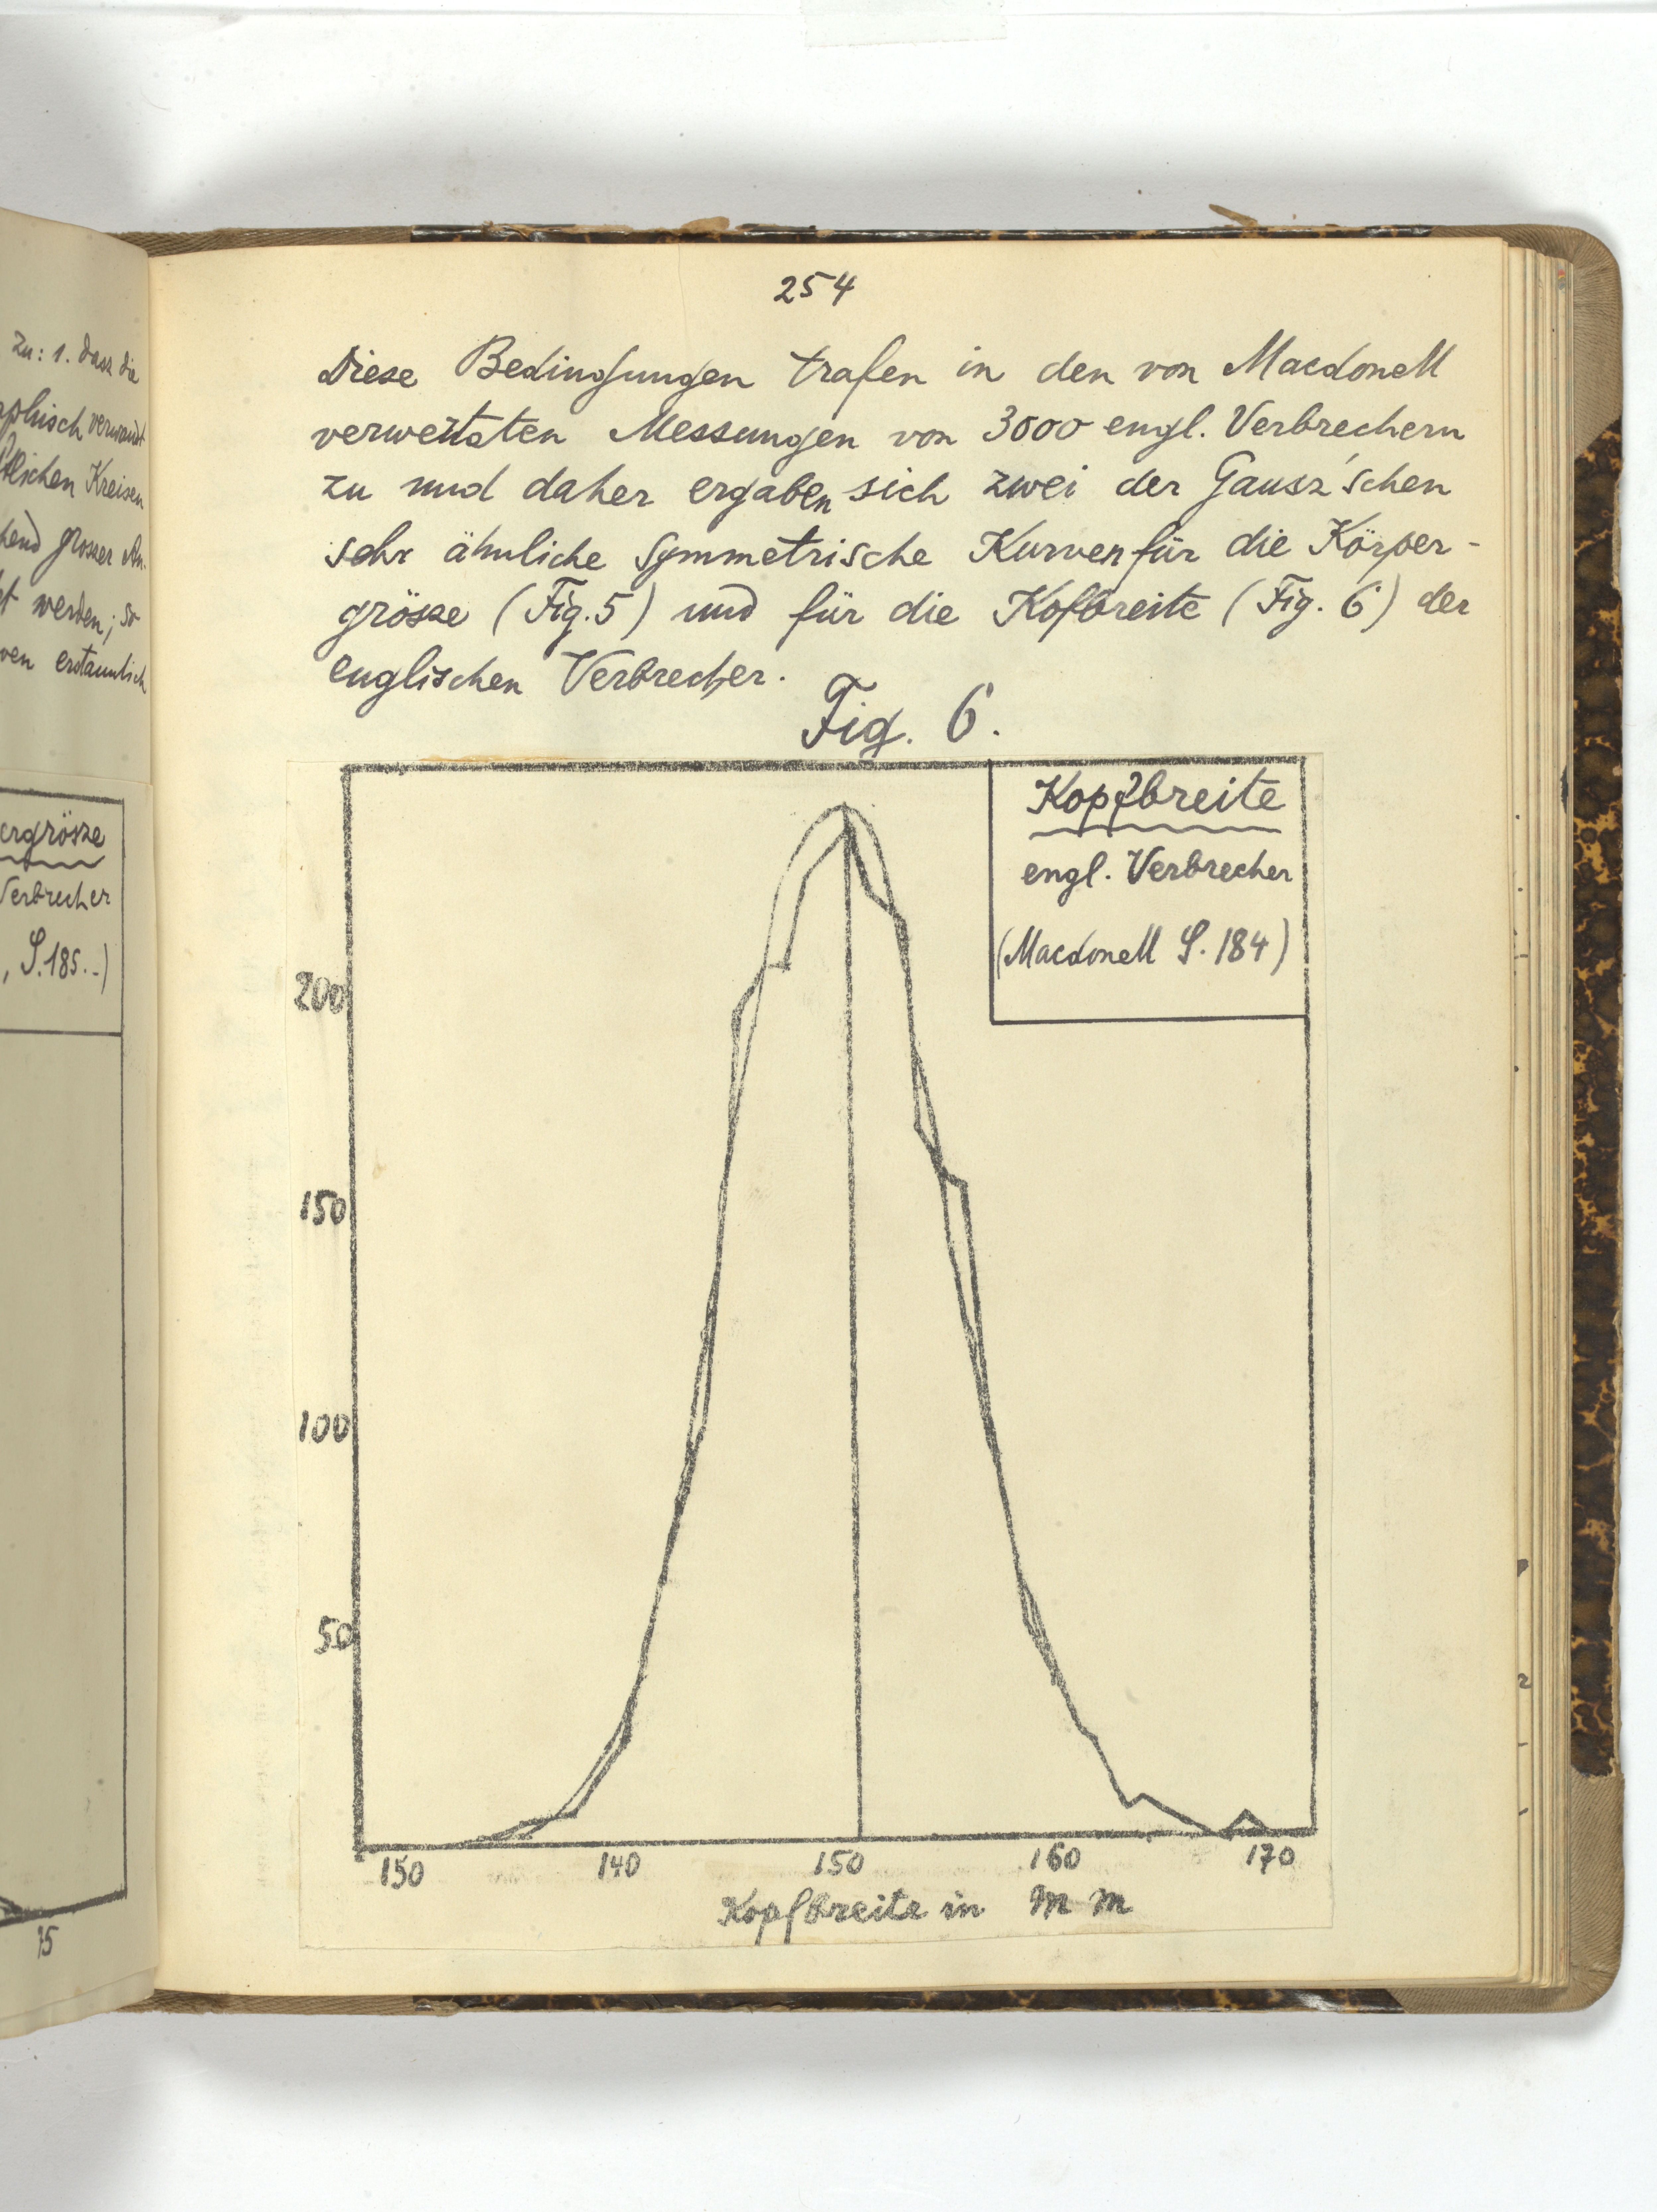 zu: 1. dass die
aphisch verwandt
tlichen Kreisen
hend grosser An-
t werden; so
ven erstaunlich
ergrösze
Verbrecher
, S.185..)
15
254
Diese Bedingungen trafen in den von Macdonell
verwerteten Messungen von 3000 engl. Verbrechern
zu und daher ergaben sich zwei der Gausz'schen
sehr ähnliche symmetrische Kurven für die Körper-
grösze (Fig. 5) und für die Kofbreite (Fig. 6) der
englischen Verbrecher.
Fig. 6.
Kopfbreite
engl. Verbrecher
(Macdonell S. 184)
200
150
100
50
150 140 150 160 170
Kopfbreite in mm